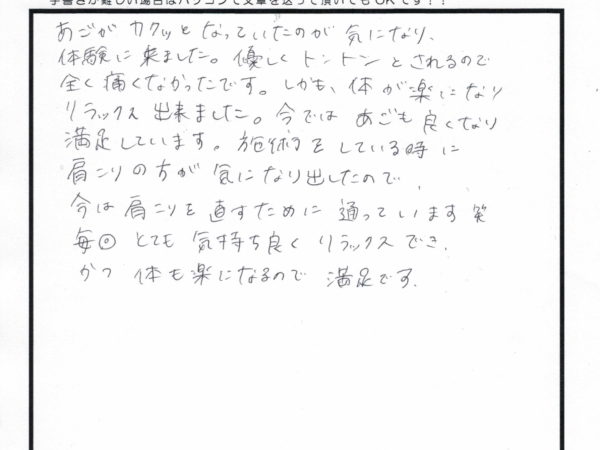 手書きが難しい場合はパソコンで文章を送って頂いてもOKです！！
あごが カクッと なっていたのが 気になり、
体験に 来ました。優しく トントン とされるので
全く 痛くなかったです。しかも、体 が 楽になり
リラックス 出来ました。今では あごも 良くなり
満足しています。施術をしている時に
肩こりの方が 気になり出したので、
今は 肩こりを 直すために 通っています 笑
毎回 とても 気持ち良く リラックス でき、
かつ 体も楽になるので 満足です。